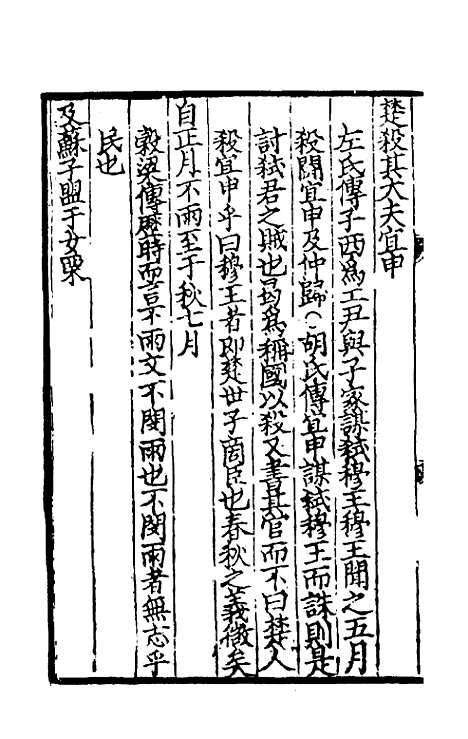 楚殺其大夫宜申
左氏傳子西爲工尹與子家謀弑穆王穆王聞之五月
殺鬬宜申及仲歸〇胡氏傳宜申謀弑穆王而誅則是
討弑君之賊也曷爲稱國以殺又書其官而不曰楚人
殺宜申乎曰穆王者即楚世子商臣也春秋之義微矣
自正月不雨至于秋七月
穀梁傳歷時而言不雨文不閔雨也不閔雨者無志乎
民也
及蘇子盟于女栗